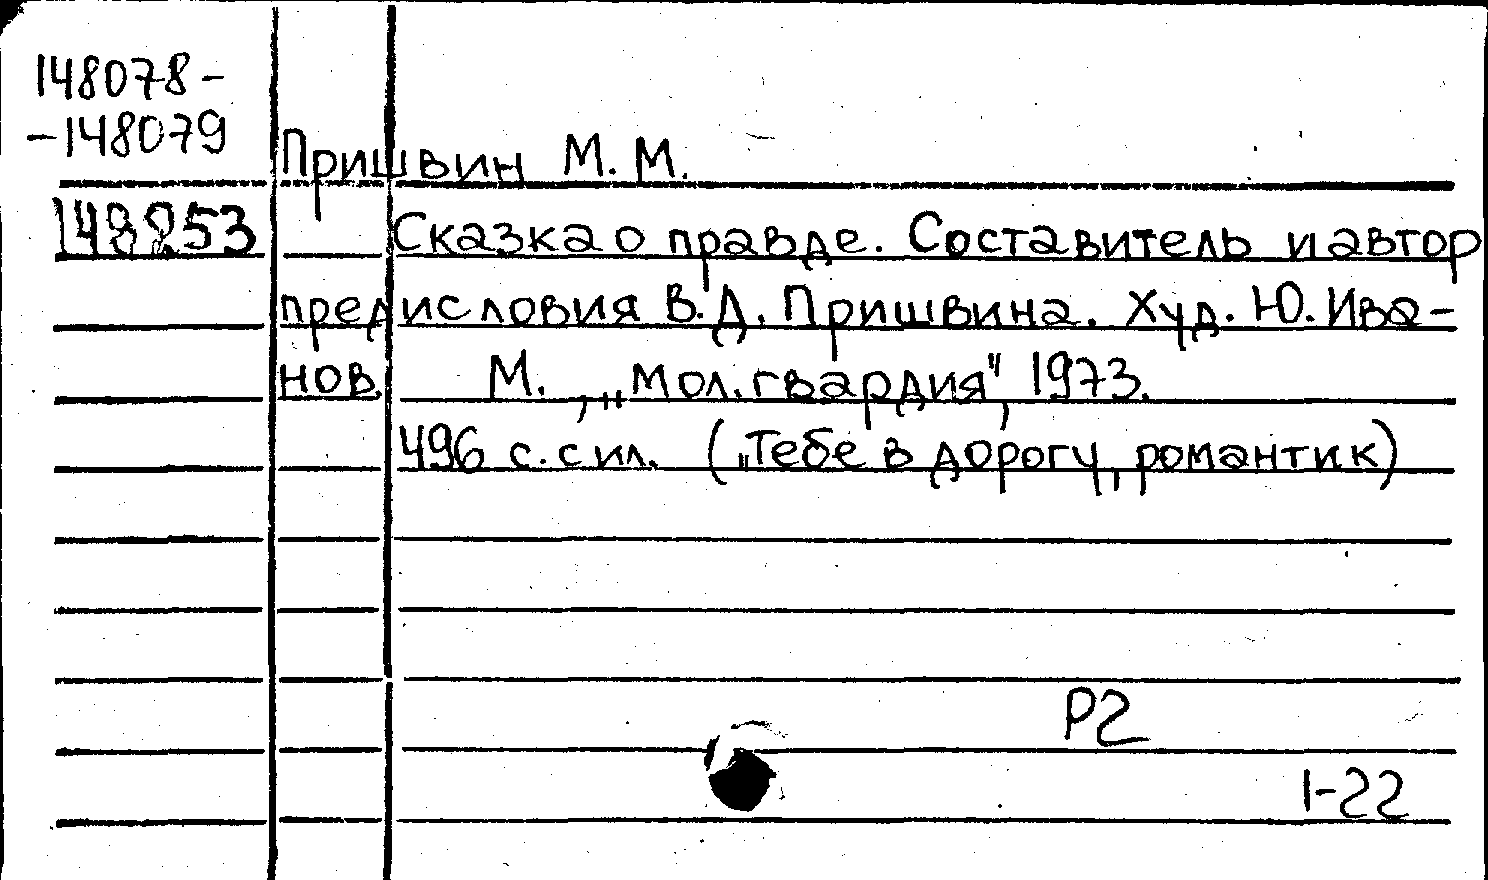 148078-
-148079
Пришвин М.М.
148253
Сказка о правде. Составитель и автор
предисловия В.Д. Пришвина. Худ. Ю. Ива-
нов. М., „Мол. гвардия", 1973.
496 с. с ил. („Тебе в дорогу, романтик)
Р2
1-22